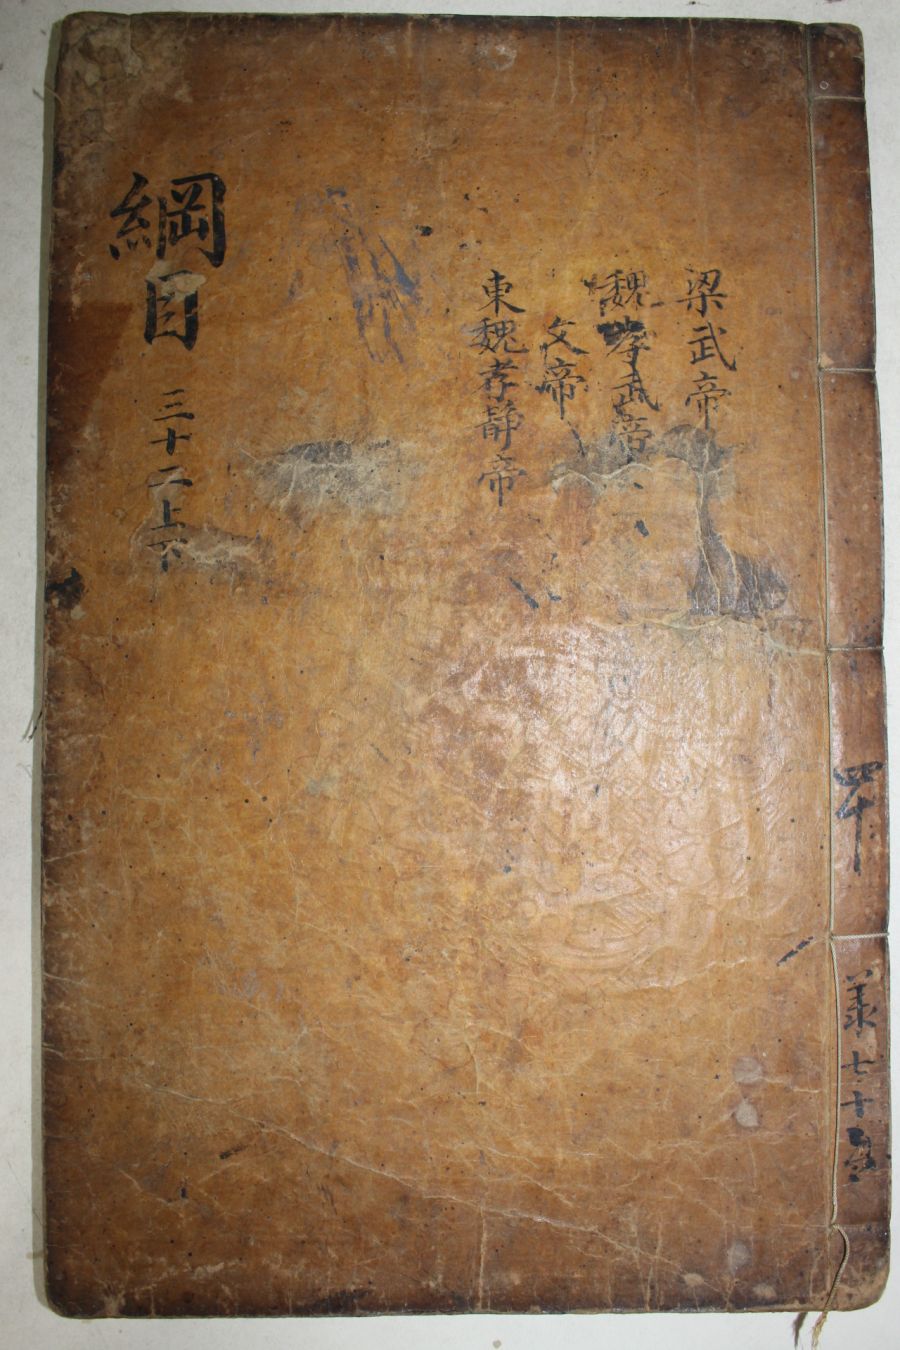 四十
美七十
梁武帝
魏孝武帝
文帝
東魏孝静帝
綱目
三十二上下